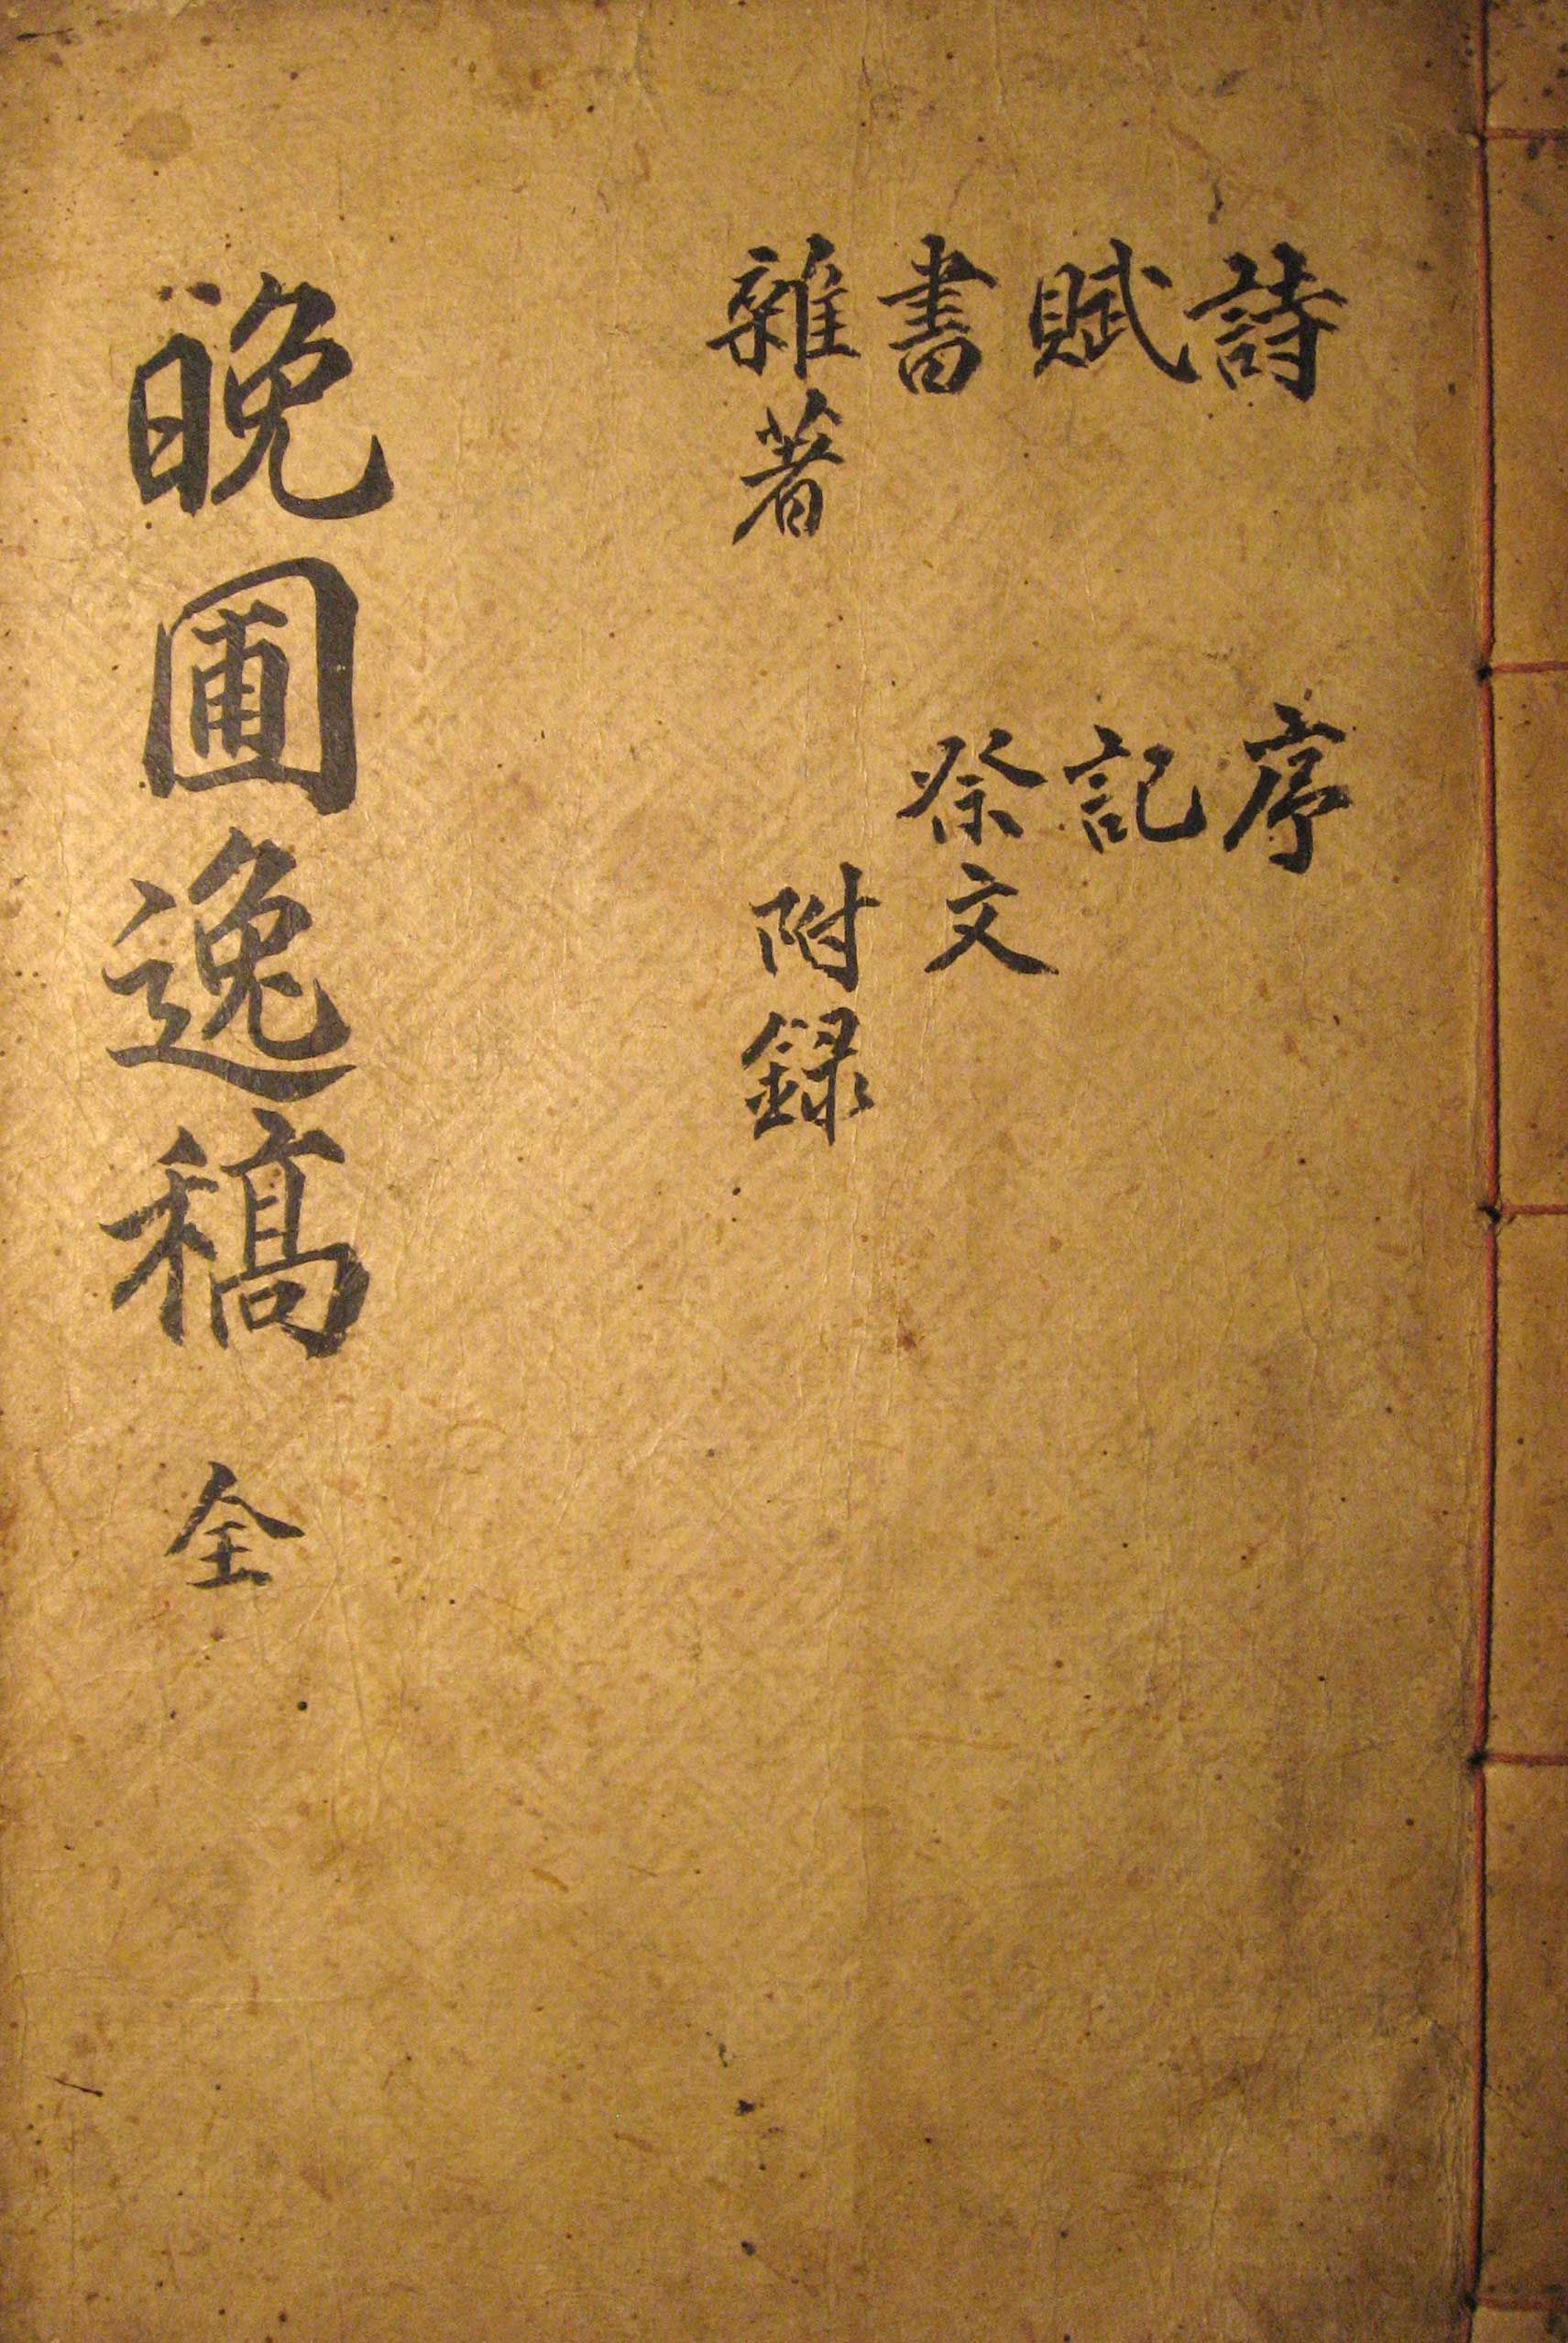 詩
賦
書
雜著
序
記
祭文
附録
晩圃逸稿 全